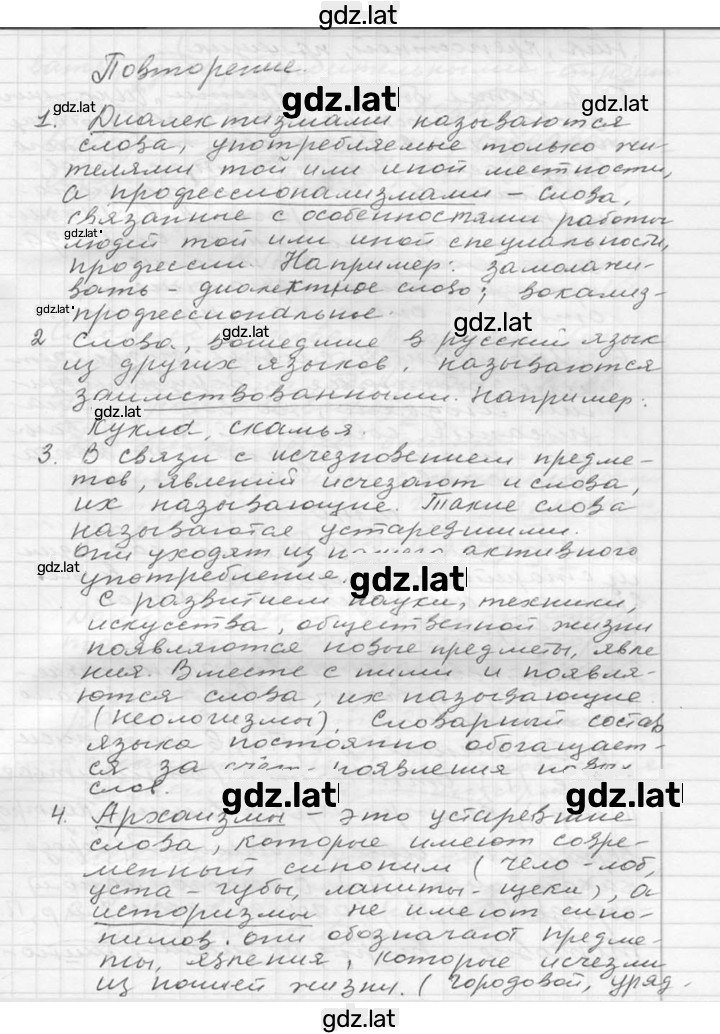 gdz.lat
Повторение.
gdz.lat gdz.lat gdz.lat
1. Диалектизмами называются
слова, употребляемые только жи-
телями той или иной местности,
а профессионализмами - слова,
связанные с особенностями работы
gdz.lat
людей той или иной специальности,
профессии. Например: замолажи-
вать - диалектное слово; вокализ-
gdz.lat
профессиональное.
gdz.lat gdz.lat
2 Слова, вошедшие в русский язык
из других языков, называются
заимствованными. Например:
gdz.lat
кукла, скамья.
3. В связи с исчезновением предме-
тов, явлений исчезают и слова,
их называющие. Такие слова
называются устаревшими.
Они уходят из активного
gdz.lat
употребления.
gdz.lat
С развитием науки, техники,
искусства, общественной жизни
появляются новые предметы, явле
ния. Вместе с ними и появля-
ются слова, их называющие
(неологизмы). Словарный состав
языка постоянно обогащает-
ся за появления
слов.
gdz.lat gdz.lat
4. Архаизмы - это устаревшие
слова, которые имеют совре-
менный синоним (чело-лоб,
уста - губы, ланиты - щеки), а
историзмы не имеют сино-
нимов. они обозначают предме-
ты, явления, которые исчезли
из нашей жизни. (городовой, уряд-
gdz.lat